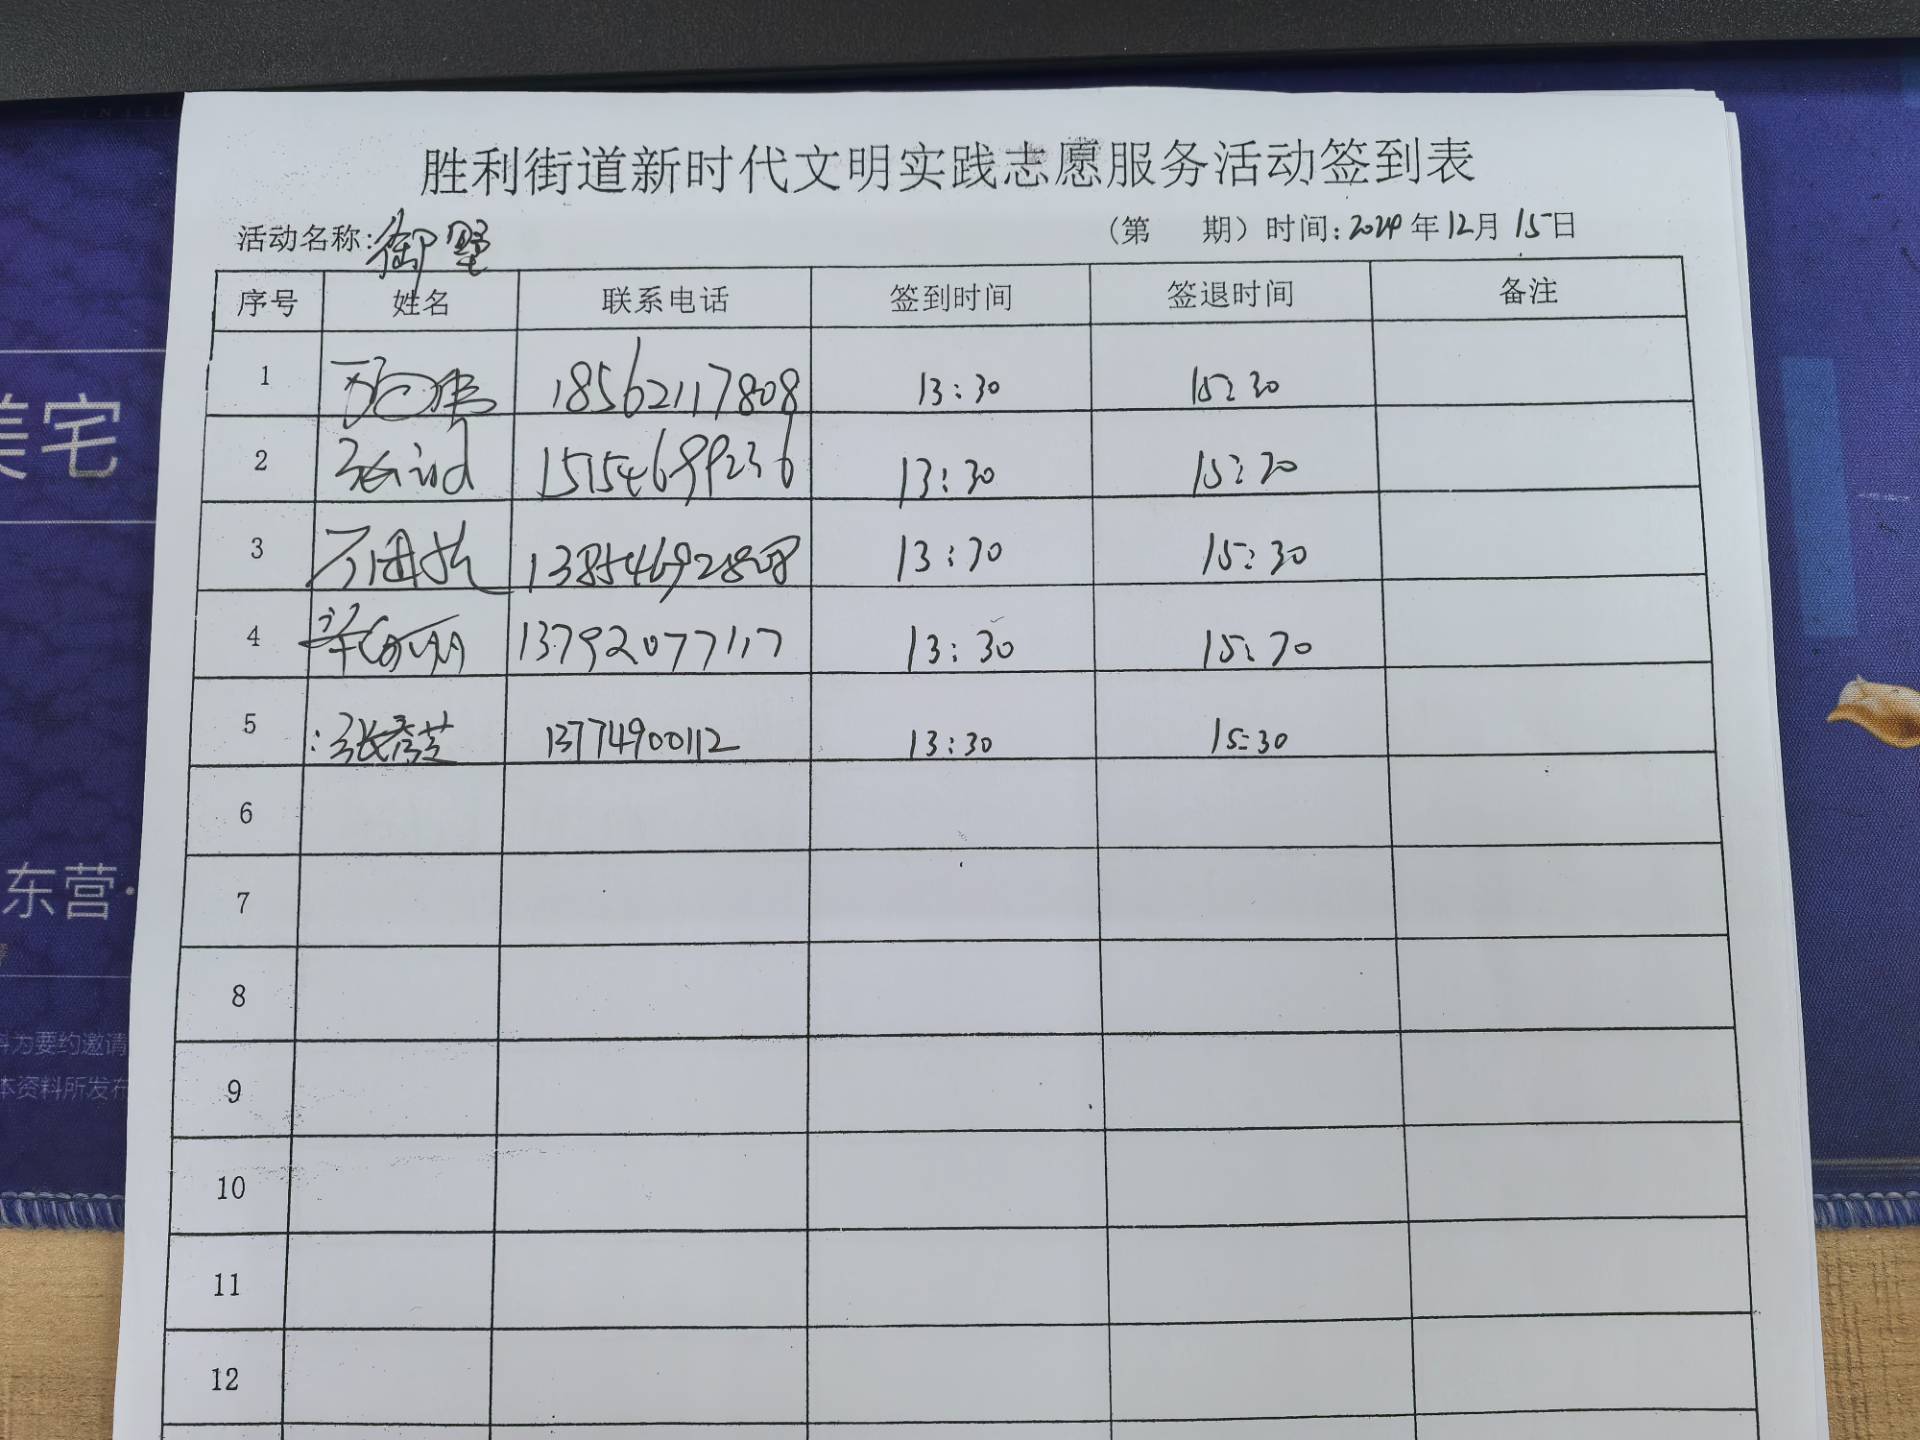 胜利街道新时代文明实践志愿服务活动签到表
活动名称:御墅 (第 期) 时间:2024年12月15日
序号 姓名 联系电话 签到时间 签退时间 备注
1 18562117808 13:30 15:30
2 15154699236 13:30 15:30
3 13854692808 13:30 15:30
4 13792077117 13:30 15:30
5 张秀芝 13774900112 13:30 15:30
6
7
8
9
10
11
12
美宅
东营·
为要约邀请
本资料所发布